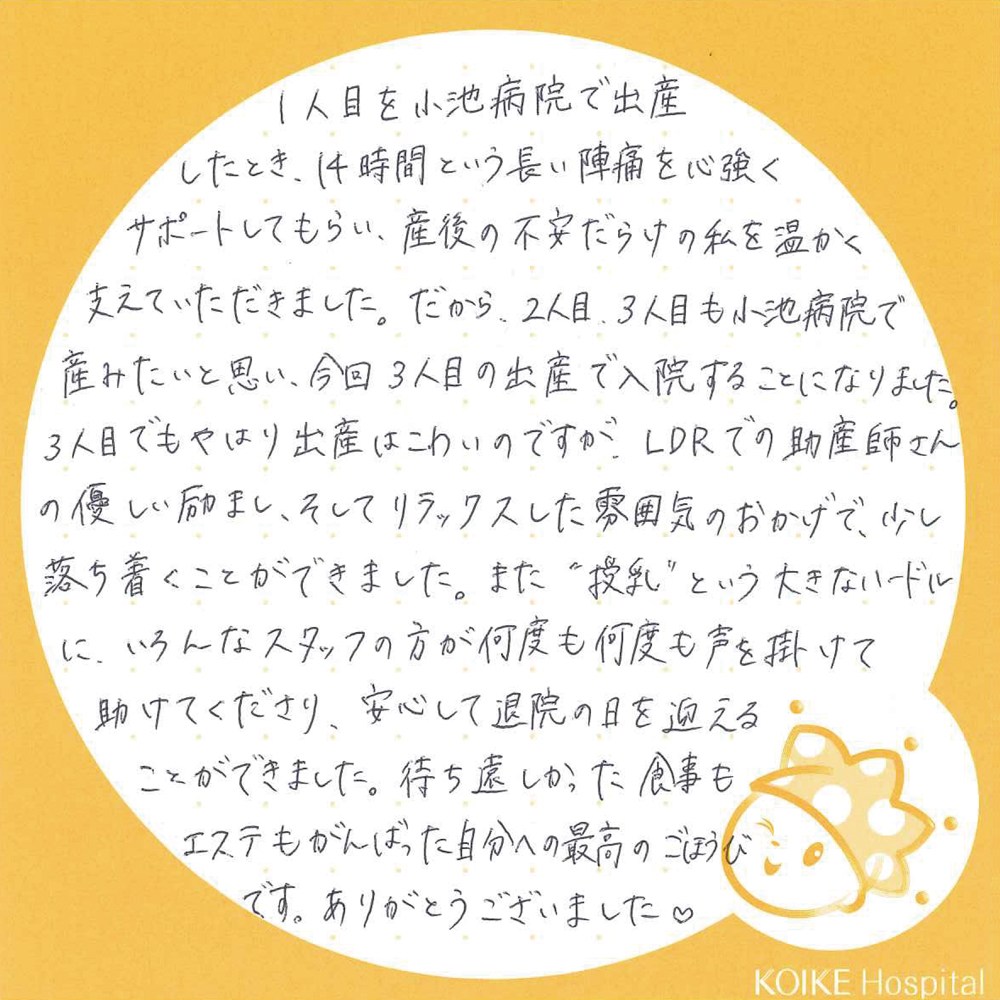 1人目を小池病院で出産
したとき、14時間という長い陣痛を心強く
サポートしてもらい、産後の不安だらけの私を温かく
支えていただきました。だから、2人目、3人目も小池病院で
産みたいと思い、今回3人目の出産で入院することになりました。
3人目でもやはり出産はこわいのですが、LDRでの助産師さん
の優しい励まし、そしてリラックスした雰囲気のおかげで、少し
落ち着くことができました。また“授乳”という大きなハードル
に、いろんなスタッフの方が何度も何度も声を掛けて
助けてくださり、安心して退院の日を迎える
ことができました。待ち遠しかった食事も
エステもがんばった自分への最高のごほうび
です。ありがとうございました♡
KOIKE Hospital